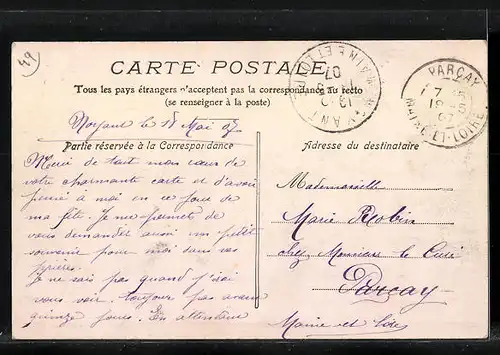 49
CARTE POSTALE
Tous les pays étrangers n'acceptent pas la correspondance au recto
(se renseigner à la poste)
Noyant le 18 Mai 07
Partie réservée à la Correspondance
Adresse du destinataire
Merci de tout mon cœur de
votre charmante carte et d'avoir
pensé à moi en ce jour de
ma fête. Je me permets de
vous demander aussi un petit
souvenir pour moi dans vos
prières.
Je ne sais pas quand j'irai
vous voir, toujours pas avant
quinze jours. En attendant
Mademoiselle
Marie Robin
chez Monsieur le Curé
Parçay
Maine et Loire
NOYANT
MAINE ET LOIRE
07
PARÇAY
7
18
07
MAINE-ET-LOIRE